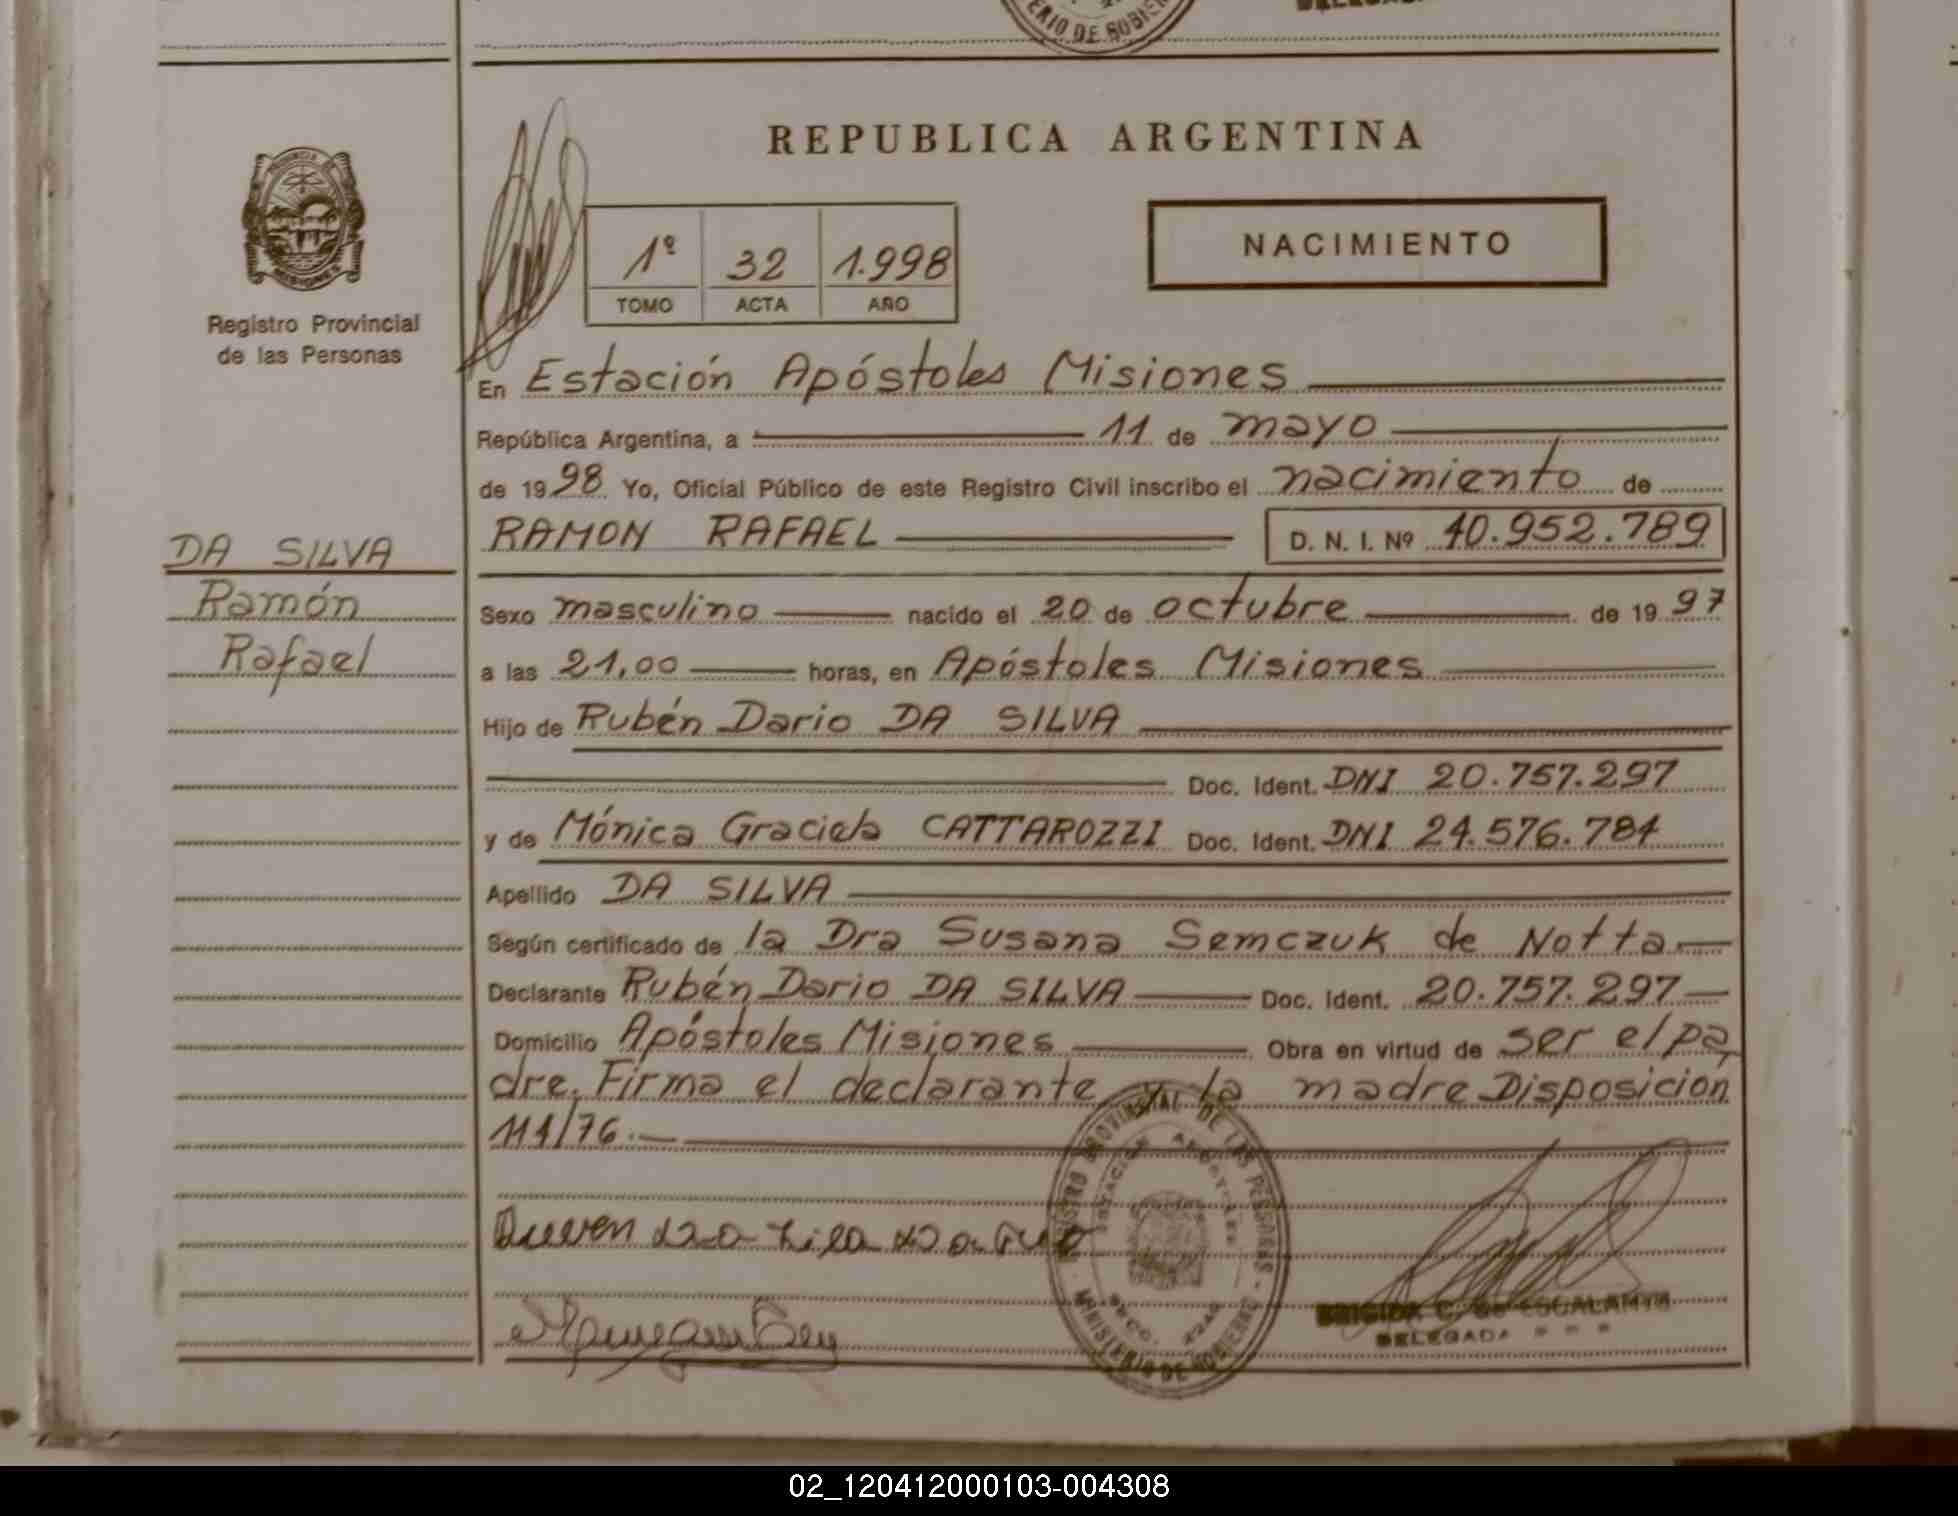 ERIO DE GOBIER
REPUBLICA ARGENTINA
NACIMIENTO
1º 32 1.998
TOMO ACTA AÑO
Registro Provincial
de las Personas
En Estación Apóstoles Misiones
República Argentina, a 11 de mayo
de 1998 Yo, Oficial Público de este Registro Civil inscribo el nacimiento de
RAMON RAFAEL D. N. I. Nº 40.952.789
DA SILVA
Ramón
Rafael
Sexo masculino nacido el 20 de octubre de 1997
a las 21,00 horas, en Apóstoles Misiones
Hijo de Rubén Dario DA SILVA
Doc. Ident. DNI 20.757.297
y de Mónica Graciela CATTAROZZI Doc. Ident. DNI 24.576.784
Apellido DA SILVA
Según certificado de la Dra Susana Semczuk de Notta
Declarante Rubén Dario DA SILVA Doc. Ident. 20.757.297
Domicilio Apóstoles Misiones Obra en virtud de ser el pa
dre. Firma el declarante y la madre Disposicion
111/76.
REGISTRO PROVINCIAL DE LAS PERSONAS
ESTACION APOSTOLES
MINISTERIO DE GOBIERNO
BRIGIDA C. DE ESCALANTE
DELEGADA
02_120412000103-004308